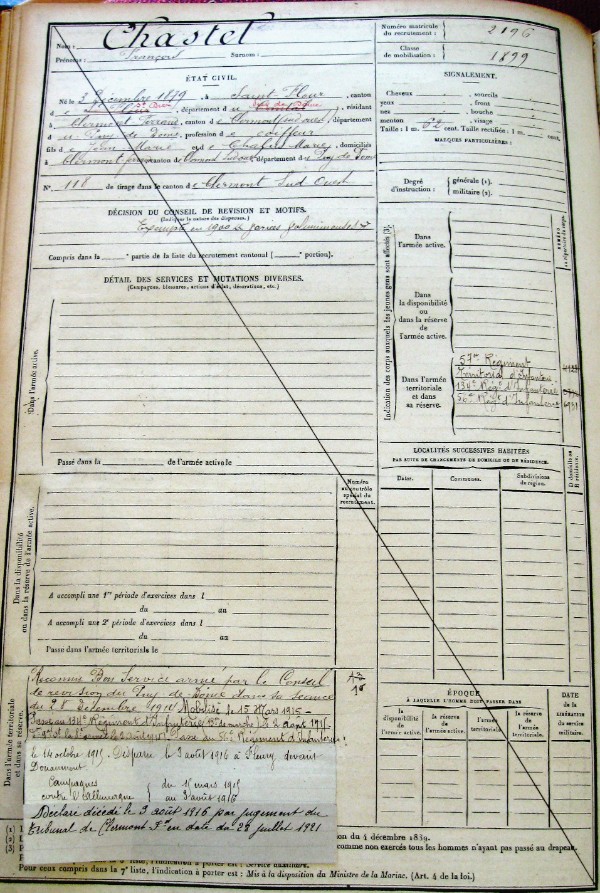 Nom : Chastel
Prénoms : François Surnom :
Numéro matricule du recrutement : 2196
Classe de mobilisation : 1899
ÉTAT CIVIL.
Né le 2 Décembre 1879, à Saint-Flour, canton
d, département d u Cantal, résidant
à Clermont-Ferrand, canton d e Clermont sud ouest, département
d u Puy de Dôme, profession d e coiffeur
fils d e Jean Marie et d e Marie, domiciliés
à Clermont, canton de Clermont Sud Ouest, département d u Puy de Dôme
N° 118 de tirage dans le canton d e Clermont Sud Ouest
SIGNALEMENT.
Cheveux , sourcils
yeux , front
nez , bouche
menton , visage
Taille : 1 m. cent. Taille rectifiée : 1 m. cent.
MARQUES PARTICULIÈRES :
Degré d'instruction : générale (1).
militaire (2).
DÉCISION DU CONSEIL DE REVISION ET MOTIFS.
Exempté en 1900
Compris dans la partie de la liste du recrutement cantonal ( portion).
DÉTAIL DES SERVICES ET MUTATIONS DIVERSES.
(Campagnes, blessures, actions d'éclat, décorations, etc.)
Dans l'armée active.
Passé dans la de l'armée active le
Indication des corps auxquels les jeunes gens sont affectés (3).
Dans l'armée active.
Dans la disponibilité ou dans la réserve de l'armée active.
Dans l'armée territoriale et dans sa réserve.
Régiment
Territorial d'Infanterie
134e Régt d'Infanterie
56e Régt d'Infanterie
LOCALITÉS SUCCESSIVES HABITÉES
PAR SUITE DE CHANGEMENTS DE DOMICILE OU DE RÉSIDENCE.
Dates. Communes. Subdivisions de région. D domicile ou R résidence.
Numéro au contrôle spécial du recrutement.
Dans la disponibilité ou dans la réserve de l'armée active.
A accompli une 1re période d'exercices dans l
du au
A accompli une 2e période d'exercices dans l
du au
Passé dans l'armée territoriale le
Dans l'armée territoriale et dans sa réserve.
Reconnu Bon Service armé par le Conseil
de revision du Puy de Dôme dans sa séance
du 28 Décembre 1914 Mobilisé le 15 Mars 1915 –
Passé au 134e Régiment d'Infanterie
Passé au 56e Régiment d'Infanterie
le 14 octobre 1915. Disparu le 3 août 1916 à Fleury devant
Douaumont
Campagnes
contre l'Allemagne { du 15 mars 1915
au 3 août 1916
Déclaré décédé le 3 août 1916 par jugement du
tribunal de Clermont Fd en date du 28 juillet 1921
ÉPOQUE
À LAQUELLE L'HOMME DOIT PASSER DANS
la disponibilité de l'armée active. la réserve de l'armée active. l'armée territoriale. la réserve de l'armée territoriale.
DATE de la LIBÉRATION du service militaire.
du 4 décembre 1889.
comme non exercés tous les hommes n'ayant pas passé au drapeau.
l'indication à porter est : Service auxiliaire.
Pour ceux compris dans la 7e liste, l'indication à porter est : Mis à la disposition du Ministre de la Marine. (Art. 4 de la loi.)